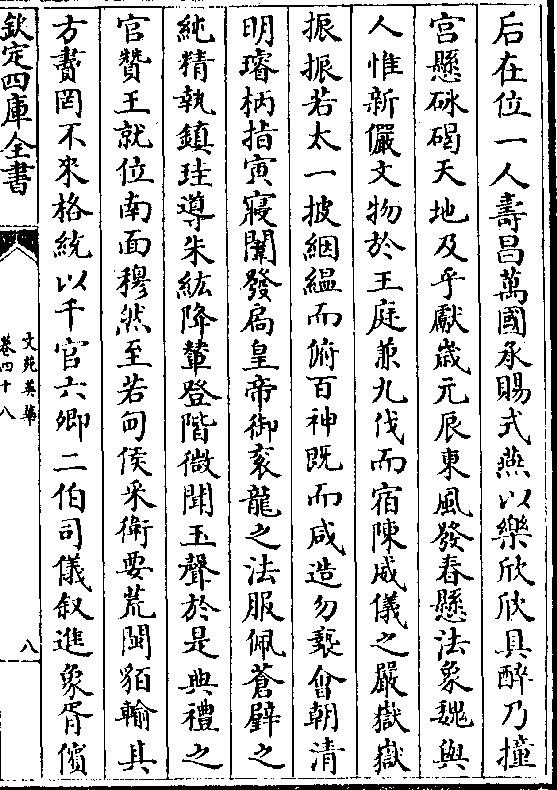 后在位一人壽昌萬國承賜式燕以樂欣欣具醉乃撞
宮懸硡礚天地及乎獻歲元辰東風發春懸法象魏與
人惟新儼文物於王庭兼九伐而宿陳威儀之嚴嶽嶽
振振若太一披絪縕而俯百神既而咸造勿䙝㑹朝清
明璿柄指寅寢闈發扃皇帝御衮龍之法服佩蒼璧之
純精執鎮珪導朱紘降輦登階微聞玉聲於是典禮之
官贊王就位南面穆然至若甸侯采衛要荒閩貊輸其
方賮罔不來格統以千官六卿二伯司儀叙進象胥儐
欽定四庫全書
文苑英華
卷四十八
八